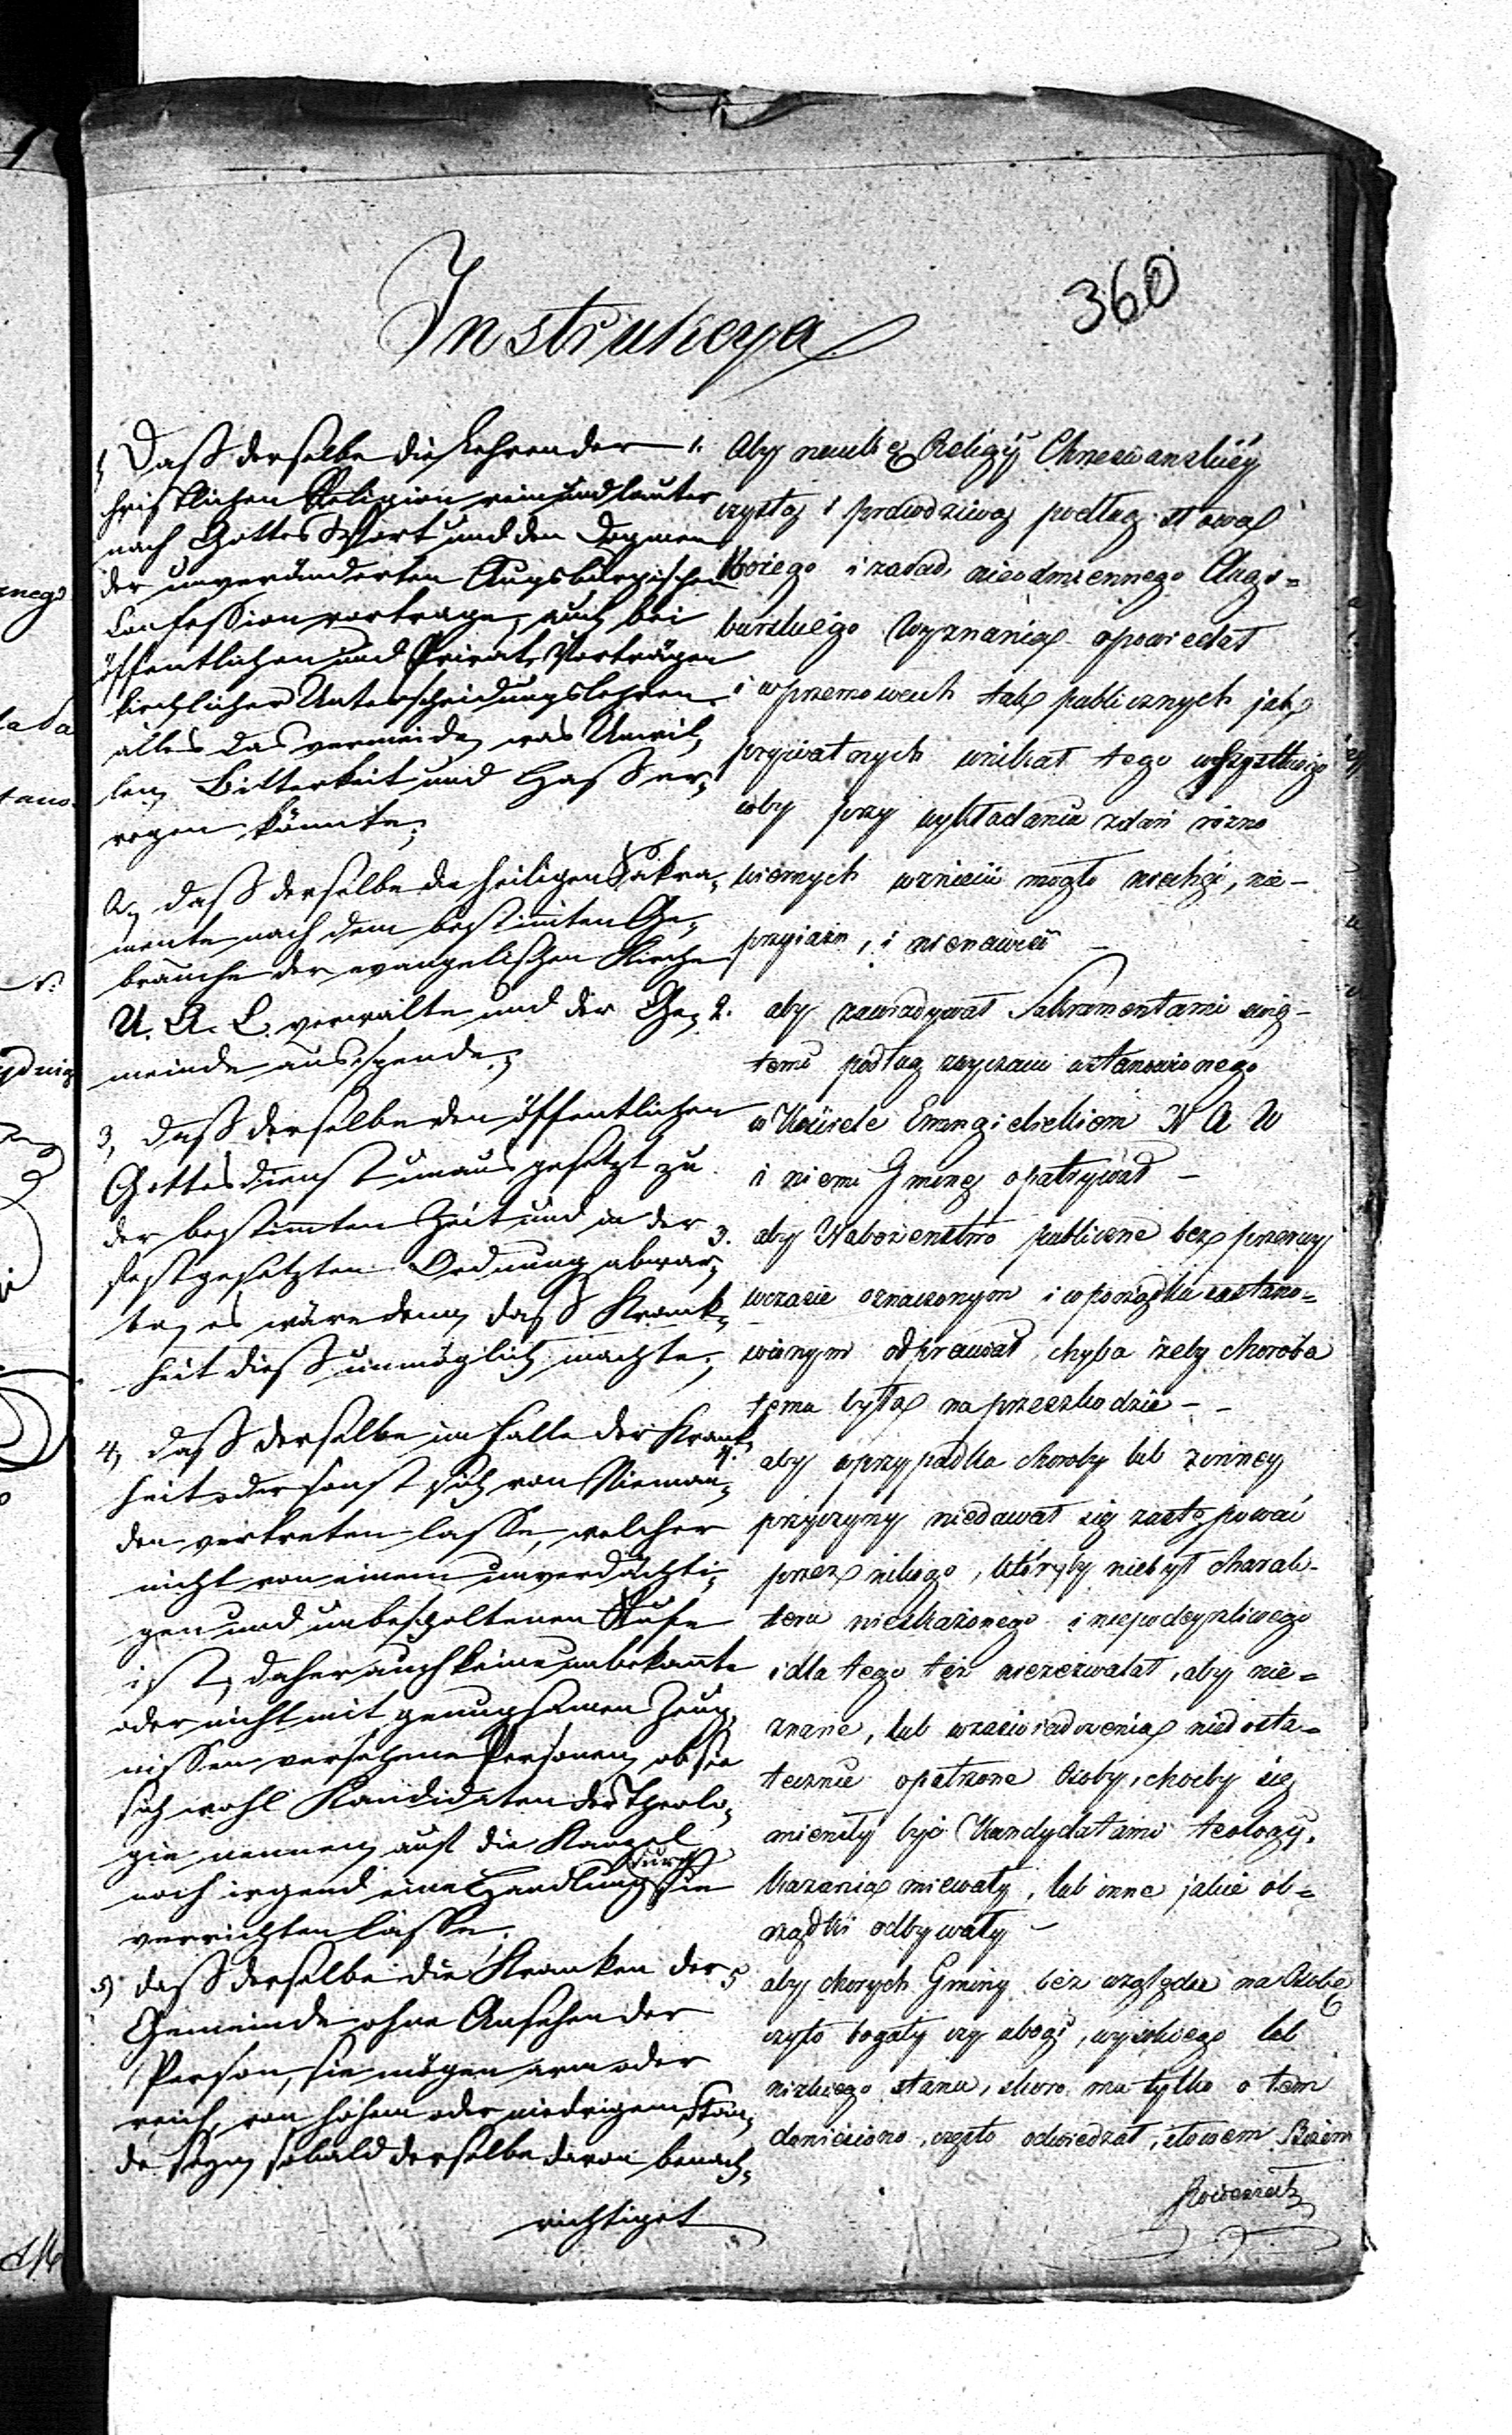 360
Instrukcya
1, Daß derselbe die Lehren der
christlichen Religion rein und lauter
nach Gottes Wort und den Dogmen
der unveränderten Augsburgischen
Confession vortrage, auch bei
öffentlichen und Privat-Vorträgen
kirchlicher Unterscheidungslehren
alles das vermeide, was Unwil-
len, Bitterkeit und Haß er-
regen könnte;
2, daß derselbe die heiligen Sakra-
mente nach dem bestimten Ge-
brauche der evangelischen Kirche
U. A. C. verwalte und der Ge-
meinde ausspende;
3, daß derselbe den öffentlichen
Gottesdienst unausgesetzt zu
der bestimten Zeit und in der
festgesetzten Ordnung abwar-
te, es wäre denn, daß Krank-
heit dieß unmöglich machte;
4, daß derselbe im Falle der Krank-
heit oder sonst sich von Nieman-
den vertreten lasse, welcher
nicht von einem unverdächti-
gen und unbescholtenen Rufe
ist, daher auch keine unbekante
oder nicht mit genugsamen Zeug-
nissen versehene Personen, ob sie
sich wohl Kandidaten der Theolo-
gie nennen, auf die Kanzel
noch irgend eine Handlung durch sie
verrichten lasse.
5, daß derselbe die Kranken der
Gemeinde ohne Ansehen der
Person, sie mögen arm oder
reich, von hohem oder niedrigem Stan-
de seyn, sobald derselbe davon benach-
richtiget
1. Aby naukę Religij Chrześcianskiéy
czystą i prawdziwą podług słowa
Bożego i zasad nieodmiennego Augs=
burskiego Wyznania opowiedał
i w przemowach tak publicznych jak
prywatnych unikał tego wszystkiego
coby przy wykładaniu zdań rózno
wiernych wzniecić mogło niechęć, nie-
przyiaźn, i nienawiść -
2. aby zawiadywał Sakramentami swię-
temi podług zwyczaiu ustanowionego
w Kościele Ewangielickiem N A W
i niemi Gminę opatrywał -
3. aby Nabożenstwo publiczne bez przerwy
w czasie oznaczonym i w porządku zastano=
wionym odprawiał, chyba żeby choroba
temu była na przeszkodzie - -
4. aby w przypadku choroby lub z inney
przyczyny niedawał się zastępować
przez nikogo, któryby niebył charak-
teru nieskażonego i niepodeyrzliwego
i dla tego też niezezwalał, aby nie=
znane, lub w zaswiadczenia niedosta=
tecznie opatrzone Osoby, choćby się
mieniły być Kandydatami teologij,
Kazania miewały, lub inne jakie ob=
rządki odbywały -
5 aby chorych Gminy bez względu na Osobę
czyto bogaty czy ubogi, wysokiego lub
nizkiego stanu, skoro mu tylko o tem
doniesiono, często odwiedzał, słowem Bożem